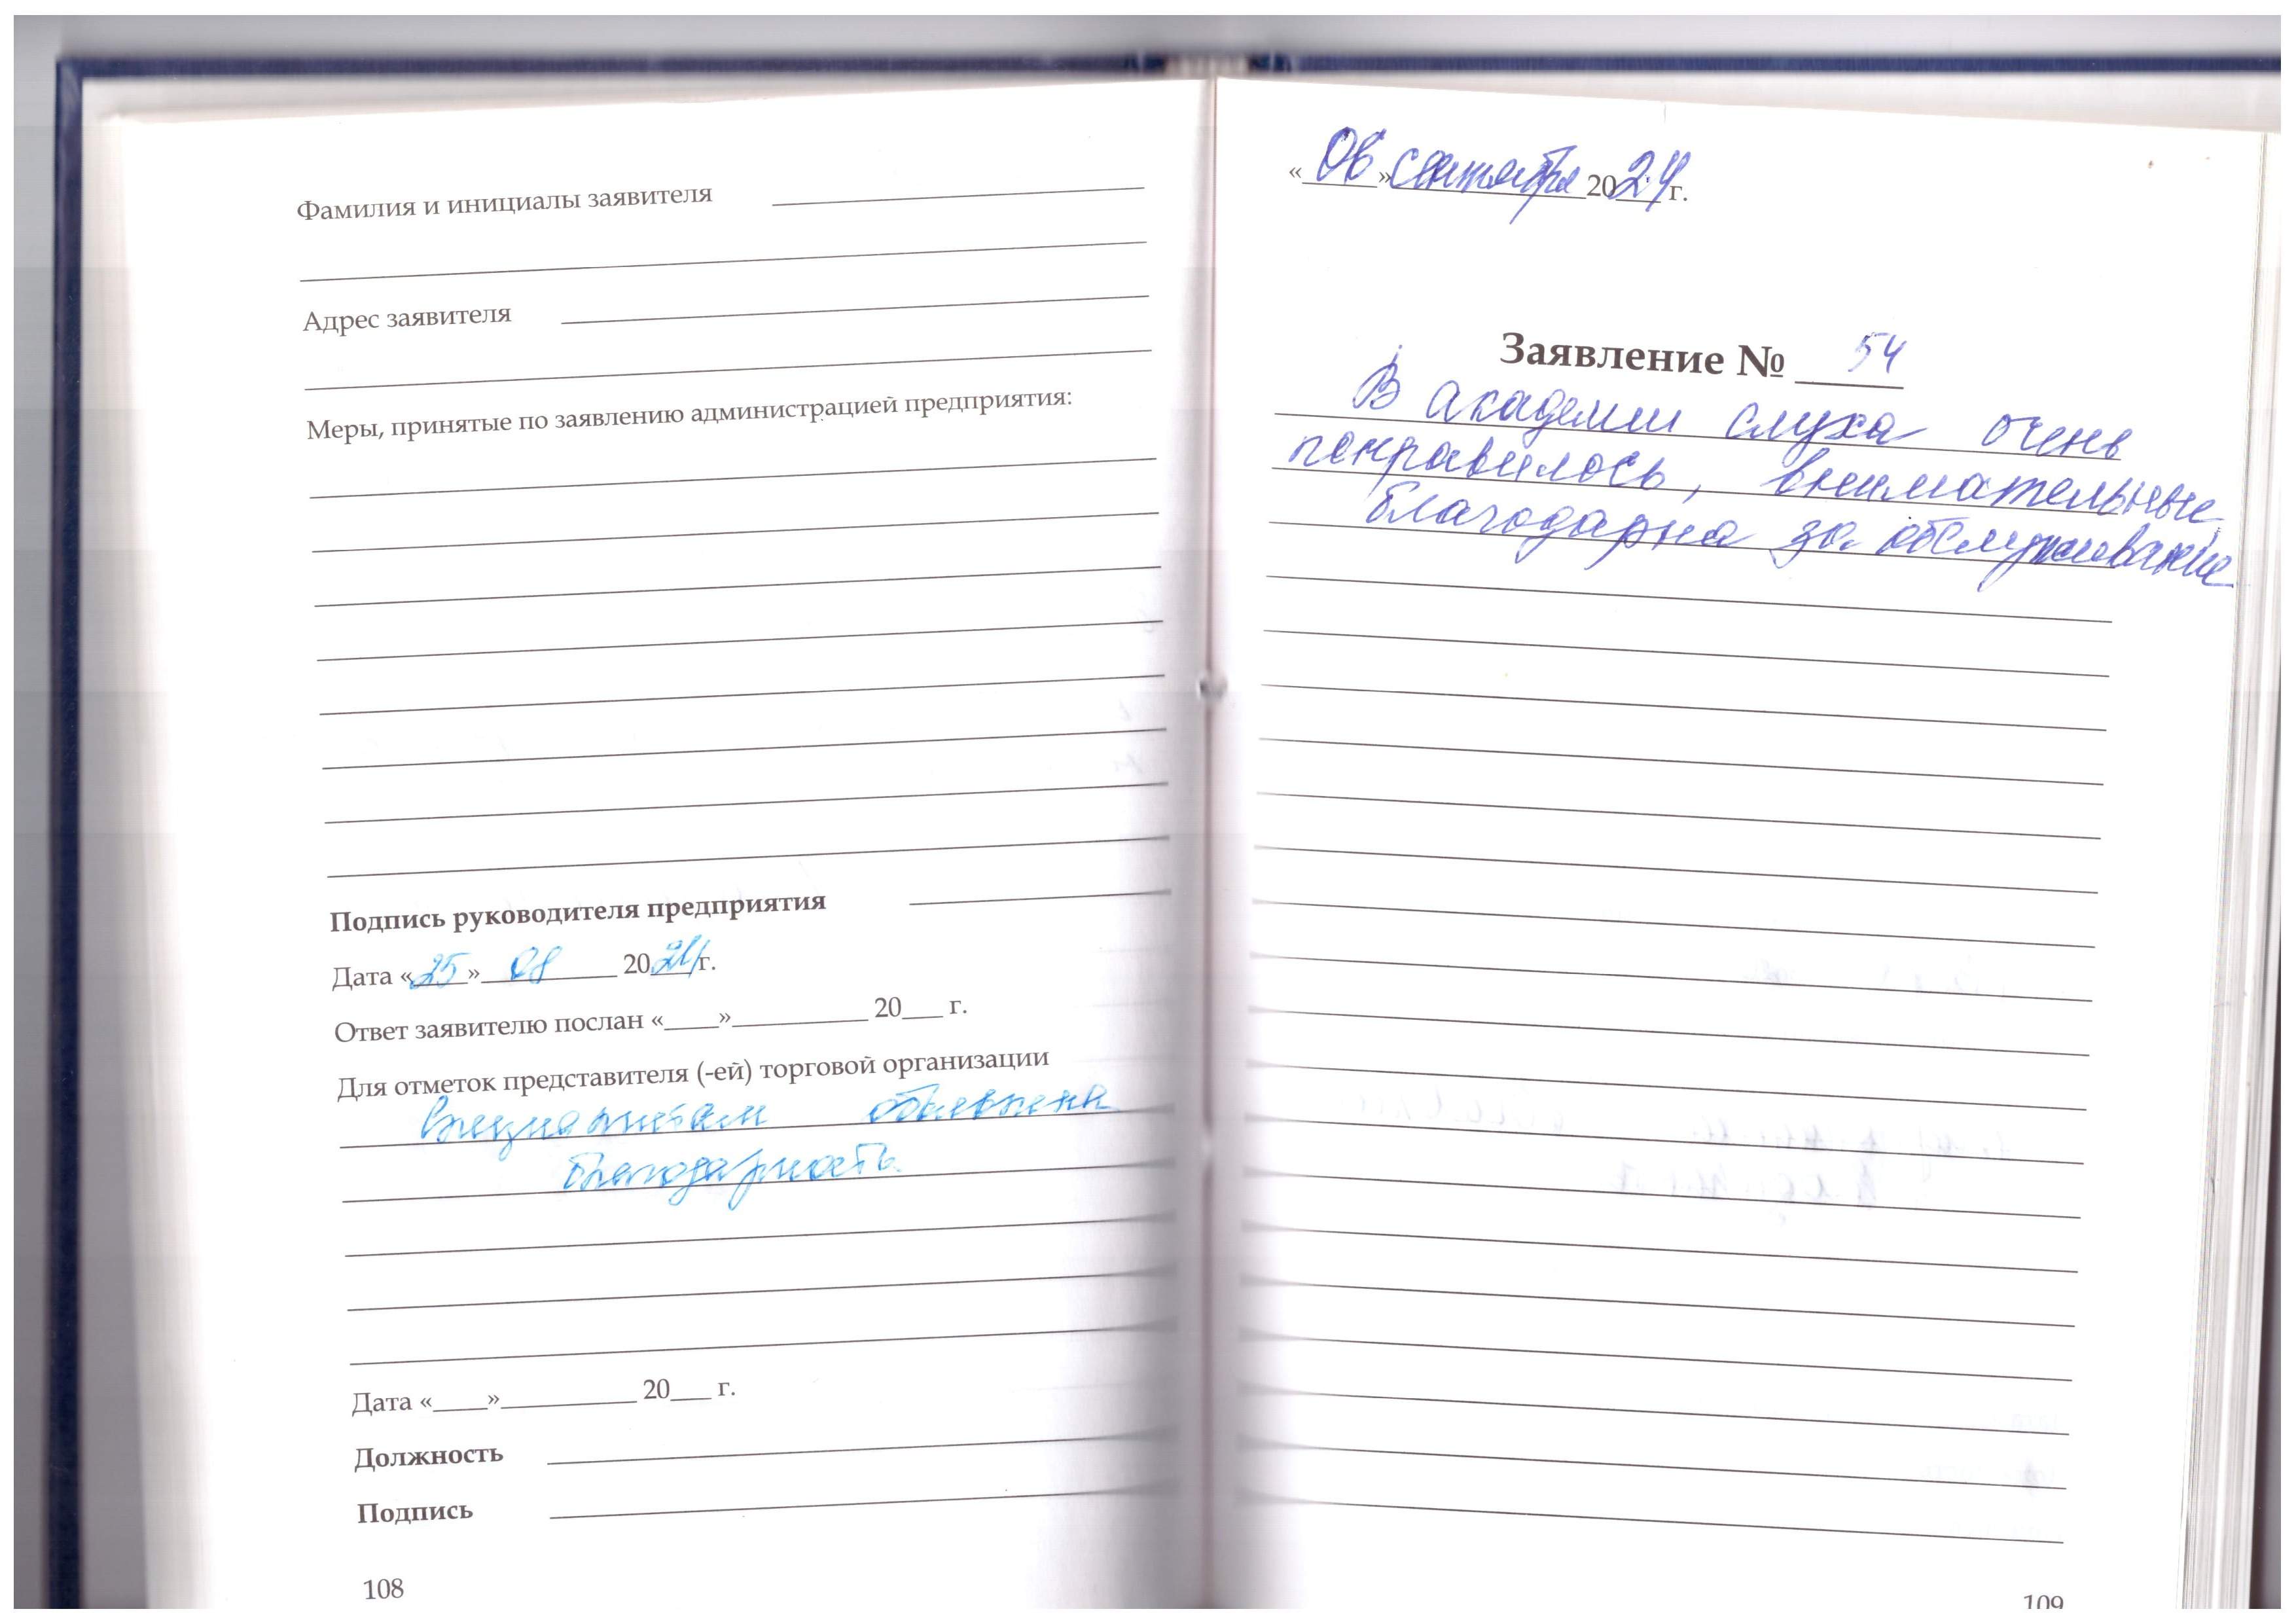 Фамилия и инициалы заявителя
Адрес заявителя
Меры, принятые по заявлению администрацией предприятия:
Подпись руководителя предприятия
Дата «25» 08 2024г.
Ответ заявителю послан «____»__________ 20___ г.
Для отметок представителя (-ей) торговой организации
Специалистам объявлена
благодарность.
Дата «____»__________ 20___ г.
Должность
Подпись
108
«06» сентября 2024 г.
Заявление № 54
В академии слуха очень
понравилось, внимательные
благодарна за обслуживание
109